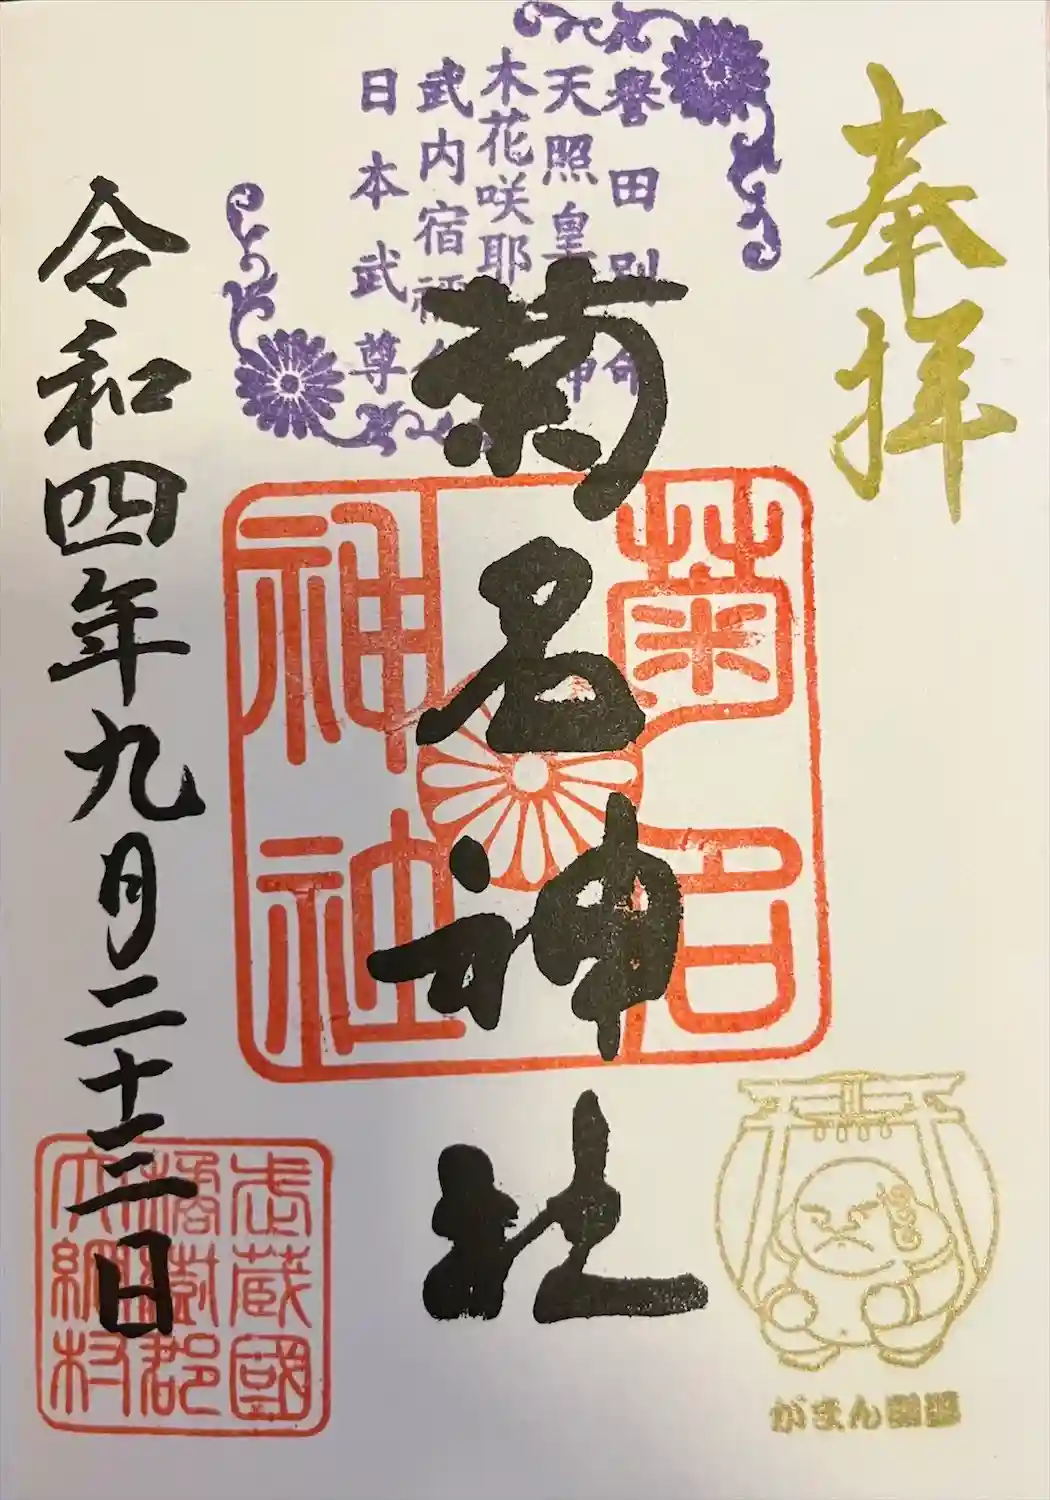 奉拝
誉田別命
天照皇
木花咲耶
武内宿禰命
日本武尊
菊名神社
菊名
神社
令和四年九月二十三日
武蔵國
橘樹郡
大綱村
がまん